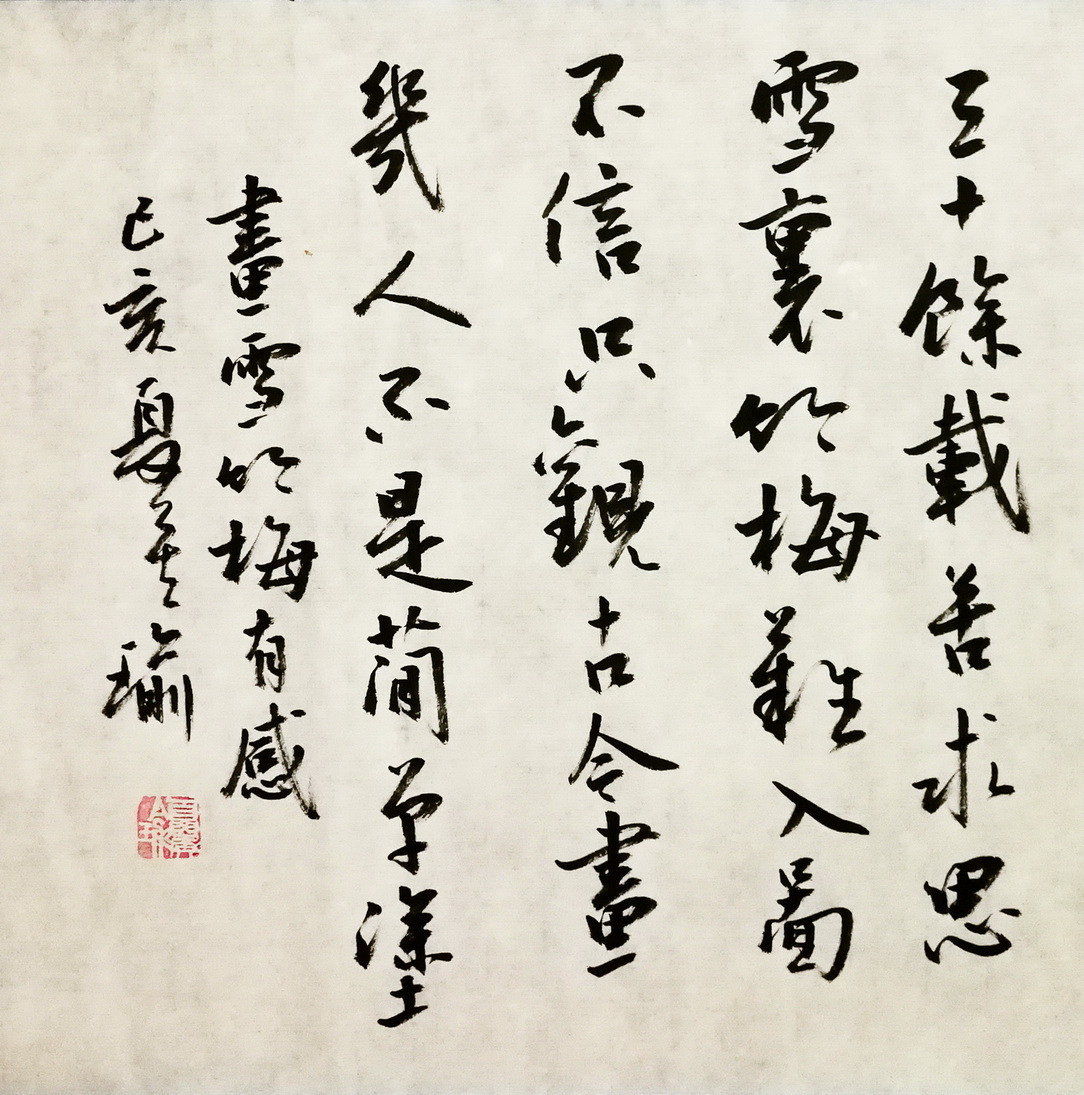 三十餘載苦求思
雪裏竹梅難入圖
不信只觀古今畫
幾人不是蕑草塗
畫雪竹梅有感
己亥夏 瑜